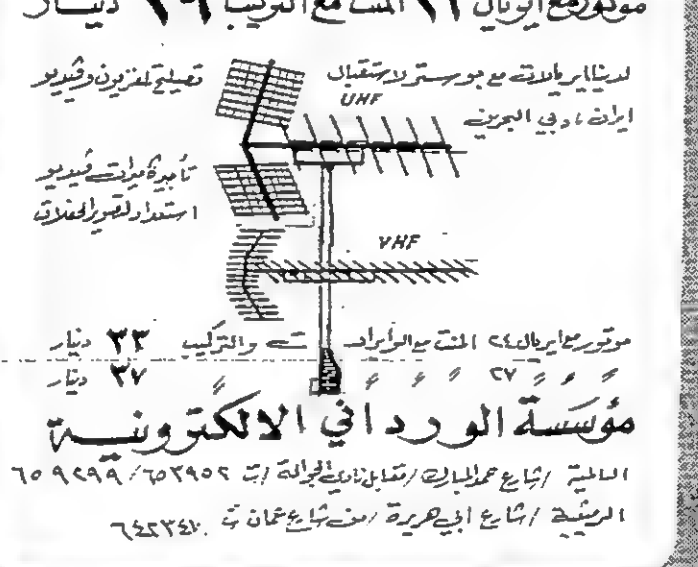 موتور مع ايريال ٢١ المنت مع التركيب ٢٩ دينار
لدينا ايريالات مع بوستر لاستقبال
ايران دبي البحرين
تصليح تلفزيون وفيديو
تأجير كاميرات فيديو
استعداد لتصوير الحفلات
UHF
VHF
موتور مع ايريال ٢٤ المنت مع الوايراد ت والتركيب ٣٣ دينار
〃 〃 〃 ٢٧ 〃 〃 〃 〃 ٣٧ دينار
مؤسسة الورداني الالكترونية
السالمية / شارع حمد المبارك / مقابل نادي الجوالة / ت ٦٥٣٩٥٢ / ٦٥٩٢٩٩
الرميثية / شارع ابي هريرة / من شارع عمان ت ٦٤٢٣٤٧٠